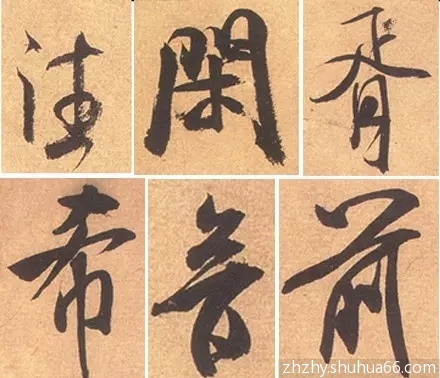 閑 胥
希 音 前
zhzhy.shuhua66.com